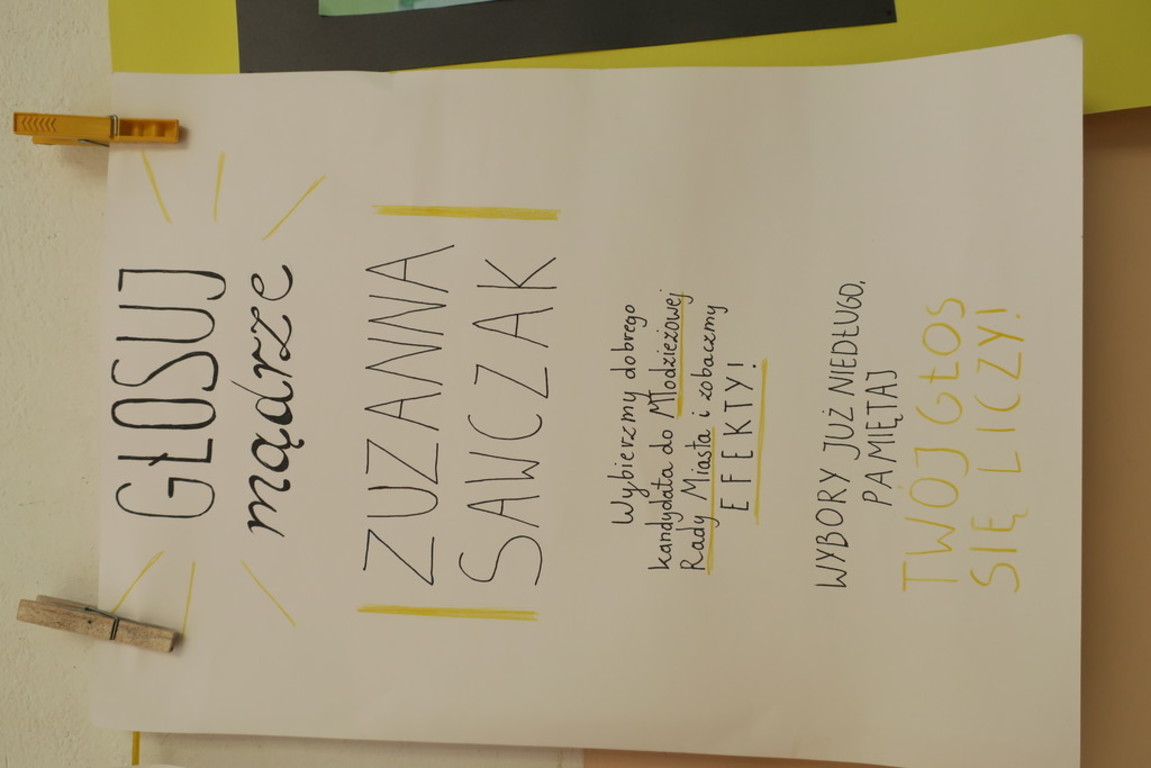 GŁOSUJ
mądrze
ZUZANNA
SAWCZAK
Wybierzmy dobrego
kandydata do Młodzieżowej
Rady Miasta i zobaczmy
EFEKTY!
WYBORY JUŻ NIEDŁUGO,
PAMIĘTAJ
TWÓJ GŁOS
SIĘ LICZY!